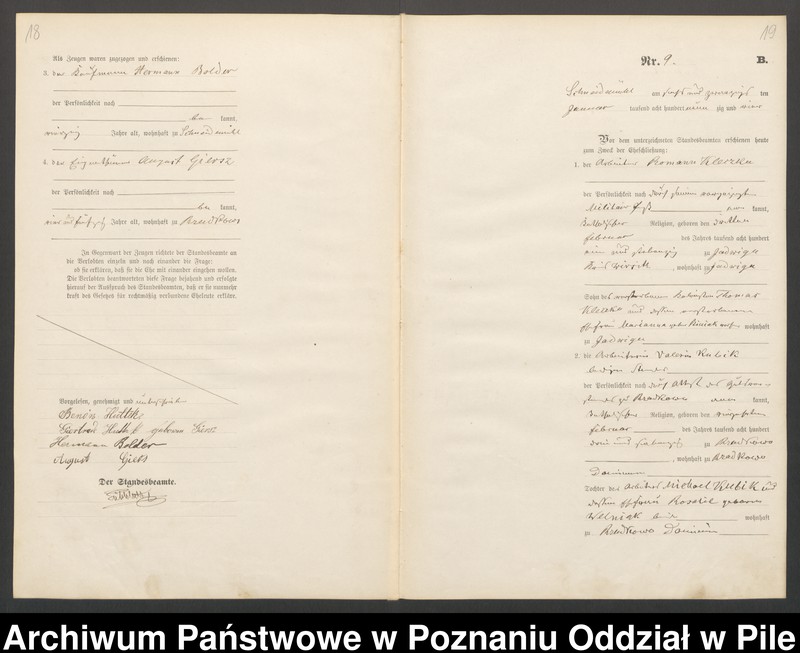 18
Als Zeugen waren zugezogen und erschienen:
3. der Kaufmann Hermann Bolder
der Persönlichkeit nach
kannt,
vierzig Jahre alt, wohnhaft zu Schneidemühl
4. der Eigenthümer August Giersz
der Persönlichkeit nach
kannt,
Jahre alt, wohnhaft zu Bradkowo
In Gegenwart der Zeugen richtete der Standesbeamte an
die Verlobten einzeln und nach einander die Frage:
ob sie erklären, daß sie die Ehe mit einander eingehen wollen.
Die Verlobten beantworteten diese Frage bejahend und erfolgte
hierauf der Ausspruch des Standesbeamten, daß er sie nunmehr
kraft des Gesetzes für rechtmäßig verbundene Eheleute erkläre.
Vorgelesen, genehmigt und unterschrieben
Gertrud geborene
Hermann Bolder
August
Der Standesbeamte.
19
Nr. 9.
B.
Schneidemühl am sechs und zwanzigsten
Januar tausend acht hundert neunzig und vier
Vor dem unterzeichneten Standesbeamten erschienen heute
zum Zweck der Eheschließung:
1. der Arbeiter Romann Kleszka
der Persönlichkeit nach durch seinen vorgezeigten
Militair kannt,
katholischer Religion, geboren den dritten
Februar des Jahres tausend acht hundert
ein und siebenzig zu Jadwiga
Kreis Wirsitz, wohnhaft zu Jadwiga
Sohn des verstorbenen Thomas
Kleszka und dessen verstorbenen
Ehefrau Marianna wohnhaft
zu Jadwiga
2. die Arbeiterin Valeria Kubik
ledigen Standes
der Persönlichkeit nach durch Attest des
zu Bradkowo kannt,
katholischer Religion, geboren den vierzehnten
Februar des Jahres tausend acht hundert
drei und siebenzig zu Bradkowo
, wohnhaft zu Bradkowo
Dominium
Tochter des Arbeiters Michael Kubik und
dessen Ehefrau Rosalie geborene
Welniak beide wohnhaft
zu Bradkowo Dominium
Archiwum Państwowe w Poznaniu Oddział w Pile